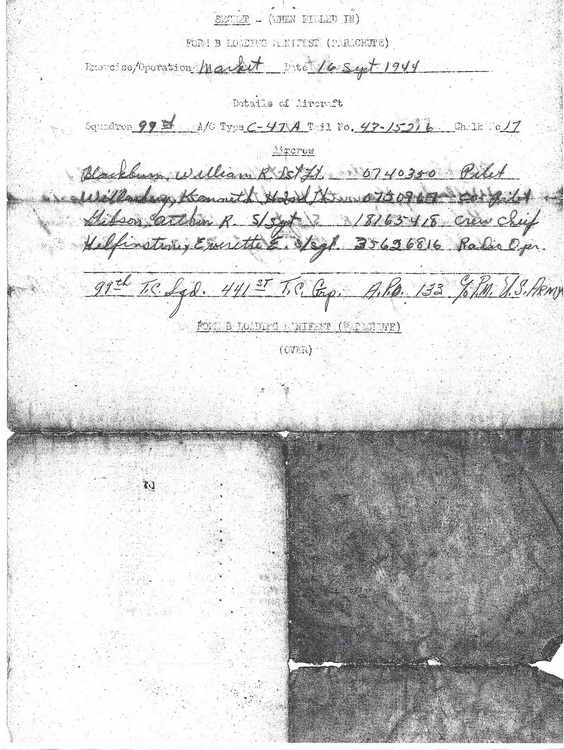 SECRET - (WHEN FILLED IN)
FORM B LOADING MANIFEST (PARACHUTE)
Exercise/Operation Market Date 16 Sept 1944
Details of Aircraft
Squadron 99th A/C Type C-47A Tail No. Chalk No 17
Aircrew
Blackburn, William R. 1st Lt. 0740350 Pilot
Kenneth Co-Pilot
Gibson, R. S/Sgt 18165418 Crew Chief
Everette E. S/Sgt. 35626816 Radio Opr.
99th T.C. Sqd. 441st T.C. Grp. A.P.O. 133 % P.M. U.S. Army
FORM B LOADING MANIFEST (PARACHUTE)
(OVER)